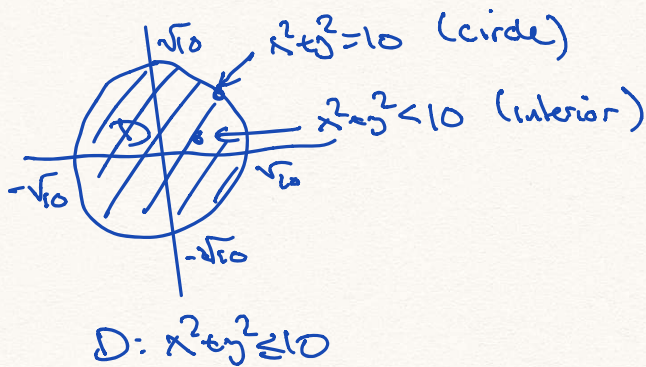 √10
x²+y²=10 (circle)
x²+y²<10 (interior)
D
-√10
√10
-√10
D: x²+y²≤10